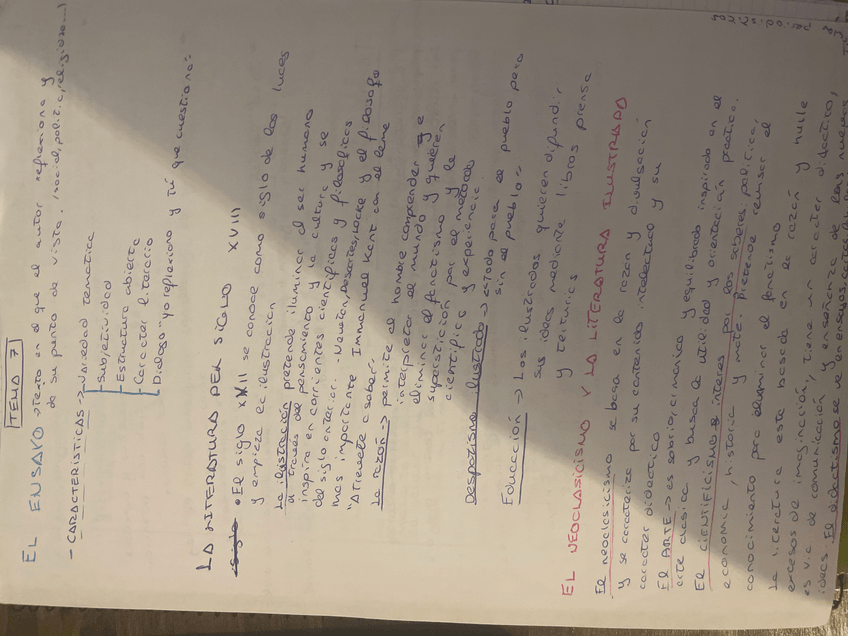 TEMA 7
EL ENSAYO → Texto en el que el autor reflexiona y
da su punto de vista. (social, politic, religioso...)
- CARACTERISTICAS → Variedad tematica
Subjetividad
Estructura abierta
Caracter literario
Dialogo "yo reflexiono y tú que cuestiono"
LA LITERATURA DEL SIGLO XVIII
siglo • El siglo XVIII se conoce como siglo de las luces
y empieza la ilustracion
La ilustración pretende iluminar al ser humano
a traves del pensamiento y la cultura y se
inspira en corrientes cientificas y filosoficas
del siglo anterior. -Newton, Descartes, Locke y el filosofo
mas importante Immanuel Kant con el leme
"Atrevete a saber".
La razón → permite al hombre comprender e
interpretar el mundo y quieren
eliminar el fanatismo y
superstición por el metodo
cientifico y experiencia.
Despotismo ilustrado → estado para el pueblo pero
sin el pueblo
Educacción → Los ilustrados quieren difundir
sus ideas mediante libros prensa
y terturias
EL NEOCLASICISMO Y LA LITERATURA ILUSTRADA
El neoclasicismo se basa en la razon y divulgación
y se caracteriza por su contenido intelectual y su
caracter didactico
El ARTE → es sobrio, armonico y equilibrado inspirado en el
arte clasico y busca la utilidad y orientación practica.
El CIENTIFICISMO interes por los saberes: politica,
economia, historia y mate. pretende revisar el
conocimiento para eliminar el fanatismo
La literatura esta basada en la razon y huile
excesos de imaginación, tiene un caracter didactico,
es via de comunicación y enseñanza de las nuevas
ideas El didactismo se ve en ensayos, cartas